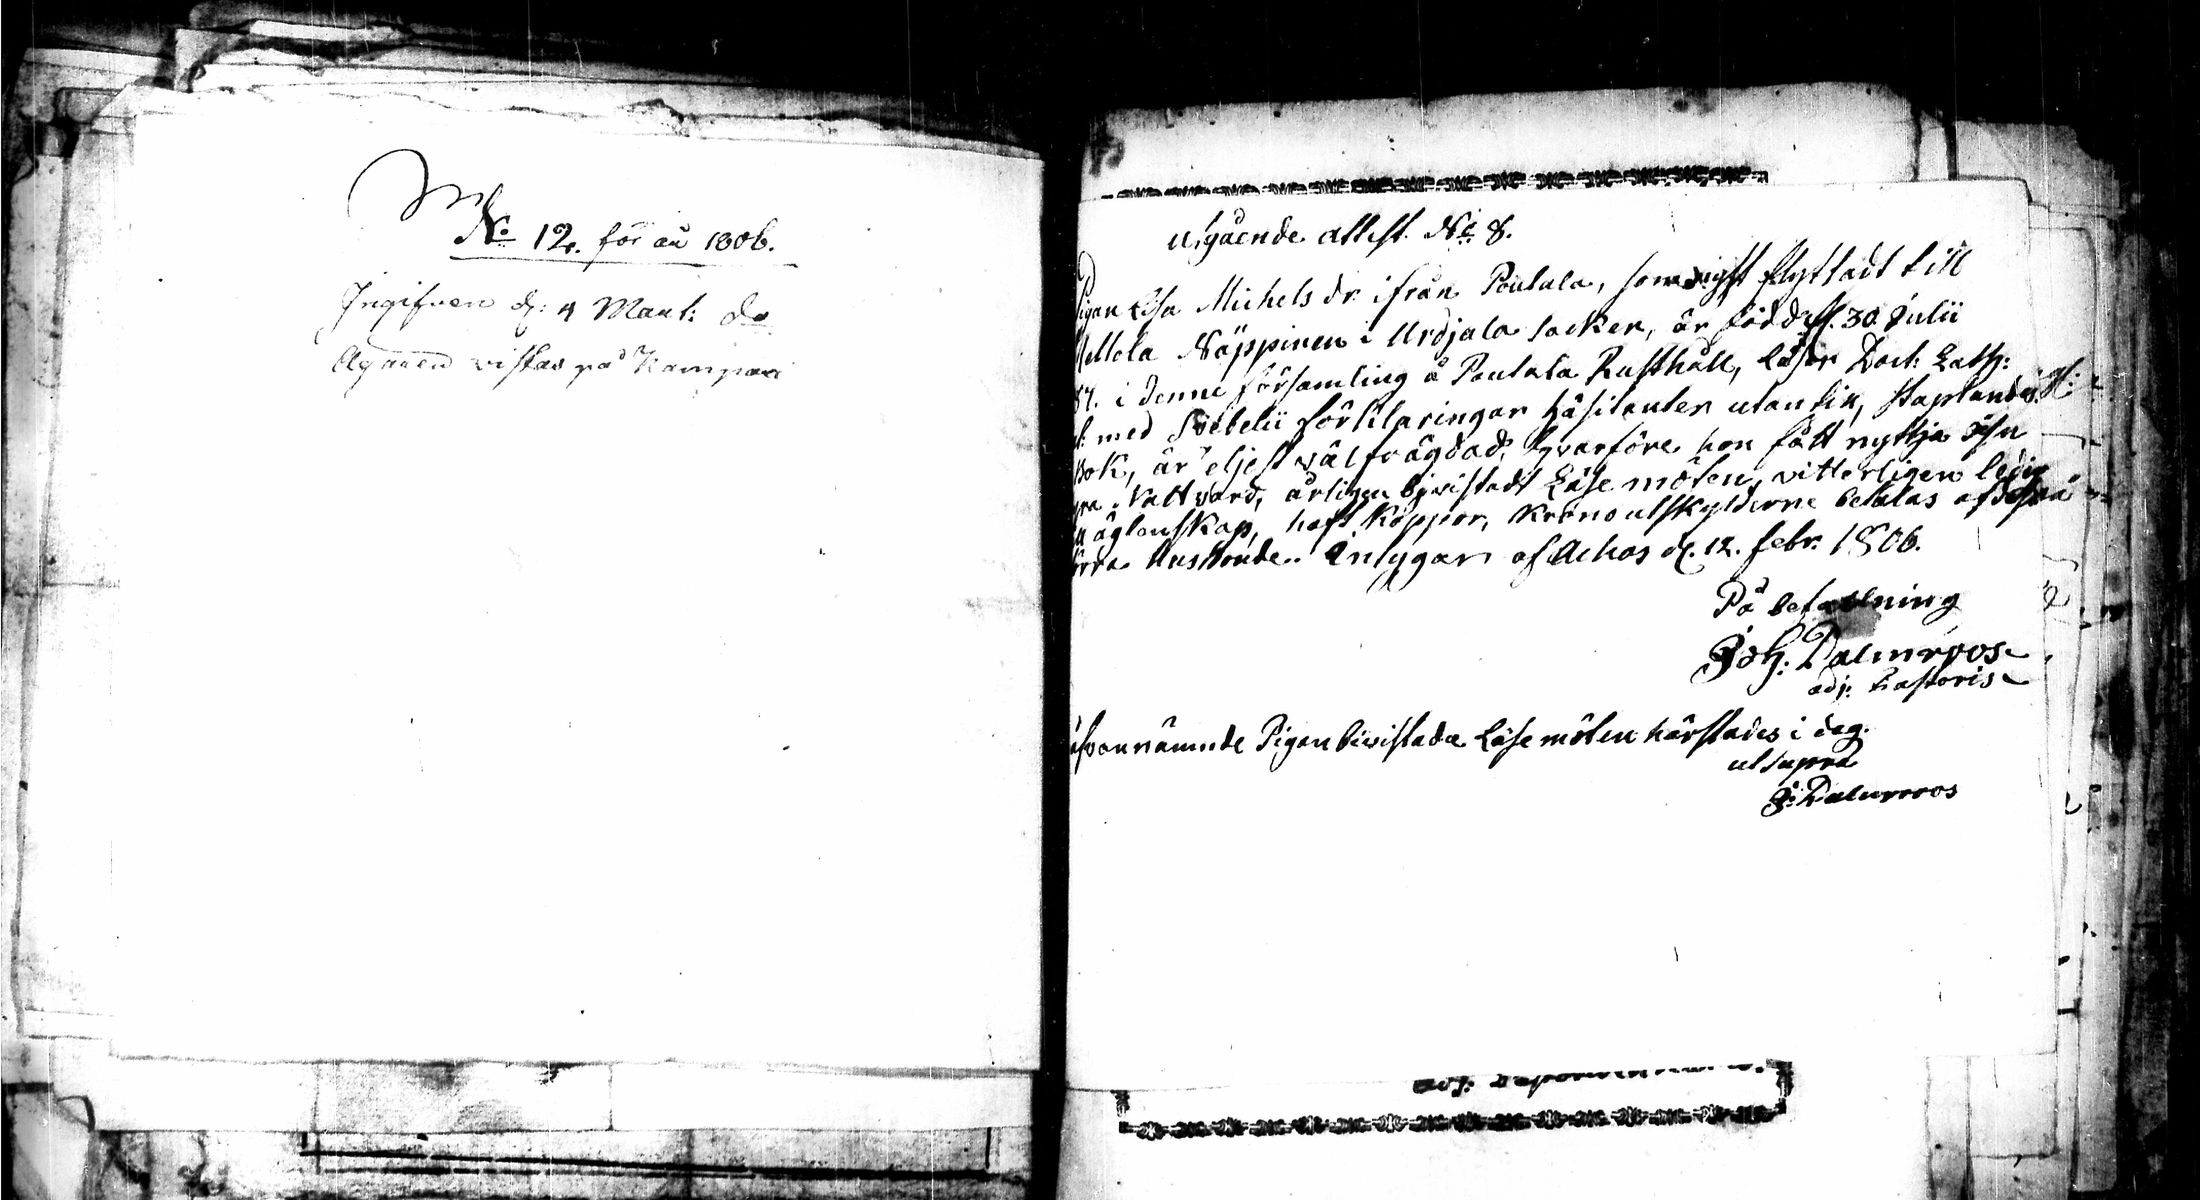 No 12. för år 1806.
Ingifven d: 4 Mart:
Ägaren vistas på Kampari
Utgående attest. No 8.
Pigan Lisa Michels dr ifrån Poutala, som flyttadt till
Mellola Näppinen i Urdjala socken, är född d. 30 Julii
87. i denne församling å Poutala Rusthåll, läser Doct: Luth:
med Svebelii förklaringar häsitanter utantil, staplandes
Bok, är eljest välfrägdad, hvarföre hon fått nyttja sin
Nattvard, årligen bivistadt Läse möten, vitterligen ledig
ägtenskap, haft koppor, kronoutskylderne betalas af dess
förra Husbonde. Intygar af Achas d. 12. febr. 1806.
På befallning
Joh: Dalmroos
adj: Pastoris
Ofvannämnde Pigan bivistade Läse möten härstädes i dag.
ut supra
J: Dalmroos